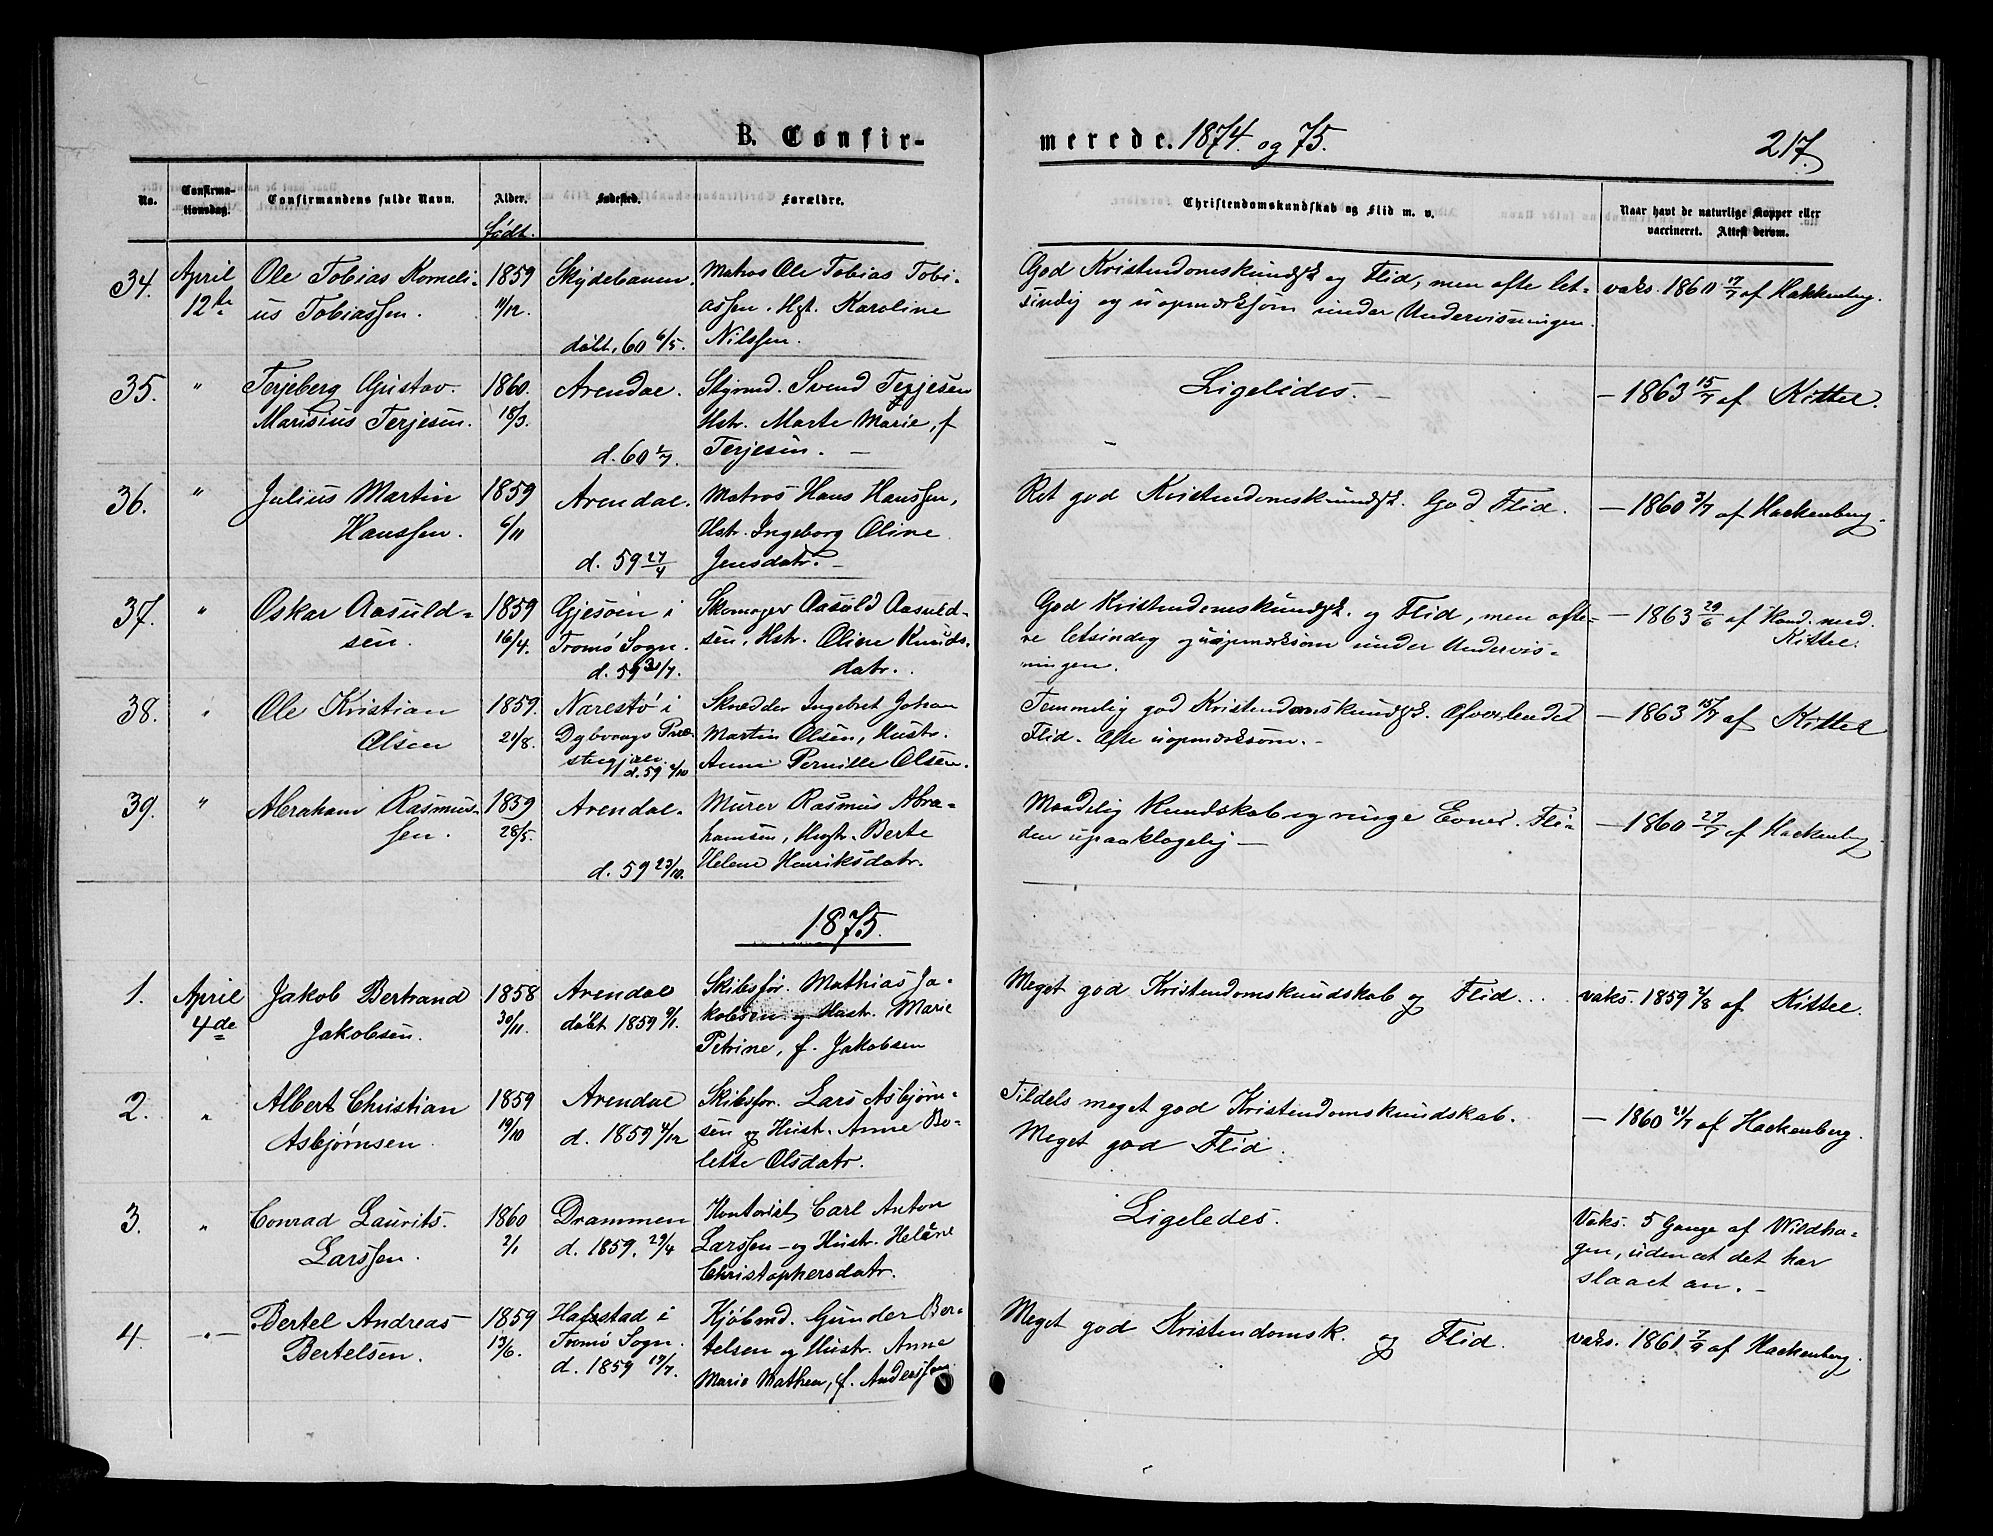 B. Confir-
merede. 1874. og 75.
217.
No.
Confirma-
tionsdag.
Confirmandens fulde Navn.
Alder.
født.
Fødested.
Forældre.
Christendomskundskab og Flid m. v.
Naar havt de naturlige Kopper eller
vaccineret. Attest derom.
34. April 12te Ole Tobias Korneli-
us Tobiassen. 1859 11/12. Skydebanen.
døbt, 60 6/5.
Matros Ole Tobias Tobi-
assen. Hgt. Karoline
Nilssen.
God Kristendomskundsk og Flid, men ofte let-
sindig og uopmærksom under Undervisningen.
vaks. 1860 17/7 af Hakkenberg.
35. " Terjeberg Gustav
Marisius Terjesen. 1860. 18/3. Arendal.
d. 60 1/7.
Styrmd. Svend Terjesen
Hstr. Marte Marie, f
Terjesen. —
Ligeledes. —
— 1863 15/7 af Kittel.
36. " Julius Martin
Hanssen. 1859 6/11 Arendal.
d. 59 27/4
Matros Hans Hanssen,
Hstr. Ingeborg Oline
Jensdatr. —
Ret god Kristendomskundsk. God Flid.
— 1860 3/7 af Hackenberg.
37. " Oskar Aasuld-
sen. 1859 16/4. Gjesøen i
Tromø Sogn.
d. 59 31/7.
Skomager Aasuld Aasuld-
sen, Hstr. Oline Knuds-
datr.
God Kristendomskundsk. og Flid, men ofte-
re letsindig og uopmærksom under Undervis-
ningen.
— 1863 29/6 af Kand. med.
Kittel.
38. " Ole Kristian
Olsen 1859. 21/8. Narestø i
Dybvaags Præ-
stegjæld.
d. 59 2/10
Skrædder Ingebret Johan
Martin Olsen, Hustr.
Anne Pernille Olsen.
Temmelig god Kristendomskundsk. Afvexlende
Flid. Ofte uopmærksom. —
— 1863 15/7 af Kittel
39. " Abraham Rasmus-
sen. 1859 28/5. Arendal.
d. 59 23/10.
Murer Rasmus Abra-
hamsen, Hustr. Berte
Helene Henriksdatr.
Maadelig Kundskab og ringe Evner. Fli-
den upaaklagelig —
— 1860 27/7 af Hackenberg
1875.
1. April 4de Jakob Bertrand
Jakobsen. 1858 30/11. Arendal
døbt 1859 9/1.
Skibsfør. Mathias Ja-
kobsen og Hustr. Marie
Petrine, f. Jakobsen
Meget god Kristendomskundskab og Flid...
vaks. 1859 2/8 af Kittel.
2. " Albert Christian
Asbjørnsen 1859 19/10 Arendal
d. 1859 4/12
Skibsfør. Lars Asbjørn-
sen og Hustr. Anne Bo-
lette Olsdatr.
Tildels meget god Kristendomskundskab.
Meget god Flid.
— 1860 21/7 af Hackenberg.
3. " Conrad Laurits
Larssen. 1860 2/1 Drammen
d. 1859. 29/4
Kontorist Carl Anton
Larssen — og Hustr. Helene
Christophersdatr.
Ligeledes.
Vaks. 5 Gange af Wildha-
gen, uden at det har
slaaet an. —
4. — " — Bertel Andreas
Bertelsen. 1859 13/6. Hafstad i
Tromø Sogn.
d. 1859 17/7.
Kjøbmd. Gunder Ber-
telsen og Hustr. Anne
Marie Mathea, f. Anderssen
Meget god Kristendomsk. og Flid.
vaks. 1861 7/7 af Hackenberg.